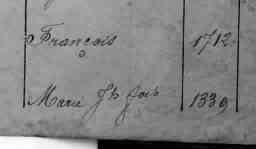 François 1712
Marie Jh fois 1339